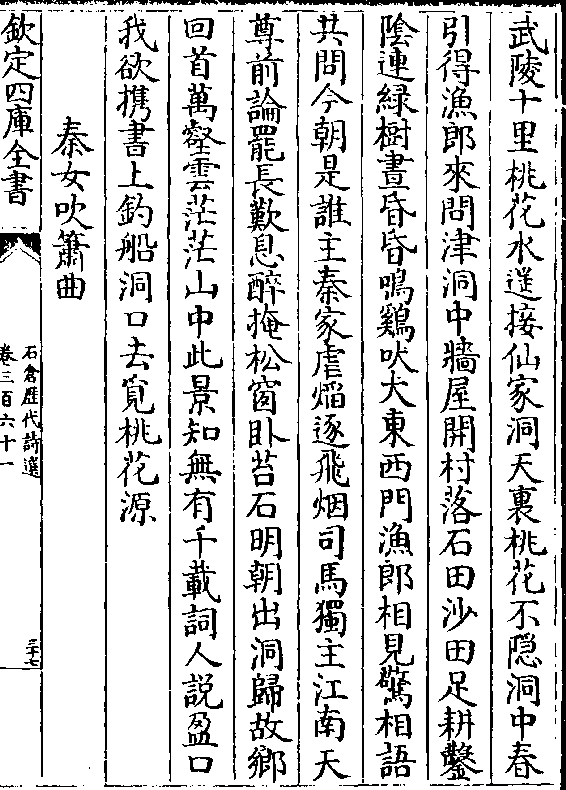 武陵十里桃花水遥接仙家洞天裏桃花不隐洞中春
引得漁郎來問津洞中牆屋開村落石田沙田足耕鑿
陰連緑樹晝昏昏鳴鷄吠犬東西門漁郎相見驚相語
共問今朝是誰主秦家虐焰逐飛烟司馬獨主江南天
尊前論罷長歎息醉掩松窗卧苔石明朝出洞歸故鄉
回首萬壑雲茫茫山中此景知無有千載詞人説盈口
我欲携書上釣船洞口去覓桃花源
秦女吹簫曲
欽定四庫全書
石倉歷代詩選
卷三百六十一
三十七